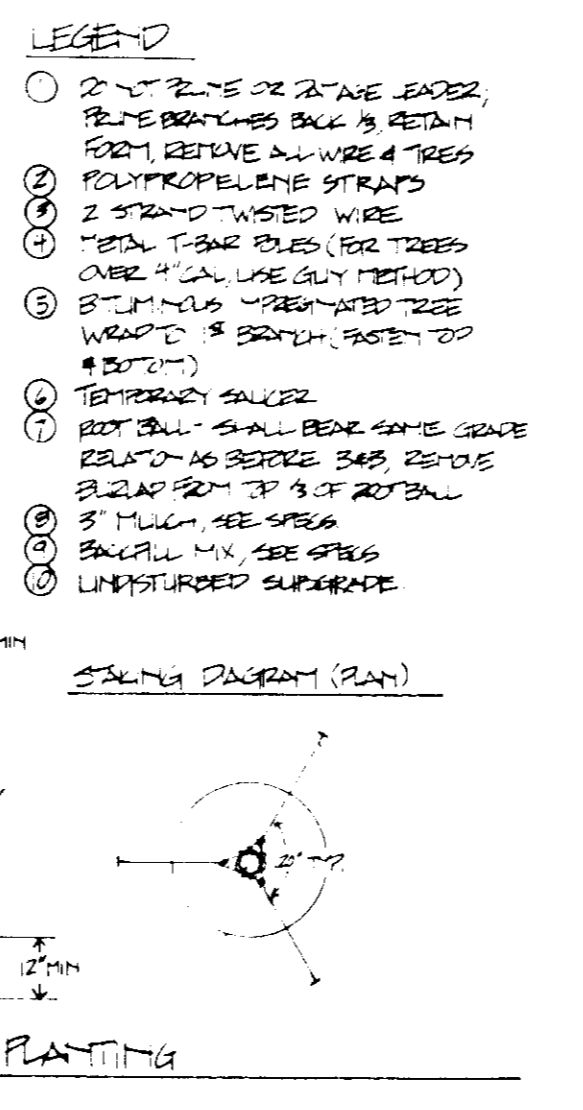 LEGEND
DO NOT PRUNE OR DAMAGE LEADER;
PRUNE BRANCHES BACK 1/3, RETAIN
FORM, REMOVE ALL WIRE & TREES
2 POLYPROPELENE STRAPS
3 2 STRAND TWISTED WIRE
4 METAL T-BAR POLES (FOR TREES
OVER 4" CAL, USE GUY METHOD)
5 BITUMINOUS IMPREGNATED TREE
WRAP TO 1ST BRANCH (FASTEN TOP
& BOTTOM)
6 TEMPORARY SAUCER
7 ROOT BALL - SHALL BEAR SAME GRADE
RELATION AS BEFORE B&B, REMOVE
BURLAP FROM TOP 1/3 OF ROOT BALL
8 3" MULCH, SEE SPECS
9 BACKFILL MIX, SEE SPECS
10 UNDISTURBED SUBGRADE
MIN
STAKING DIAGRAM (PLAN)
20° TYP.
12" MIN
PLANTING